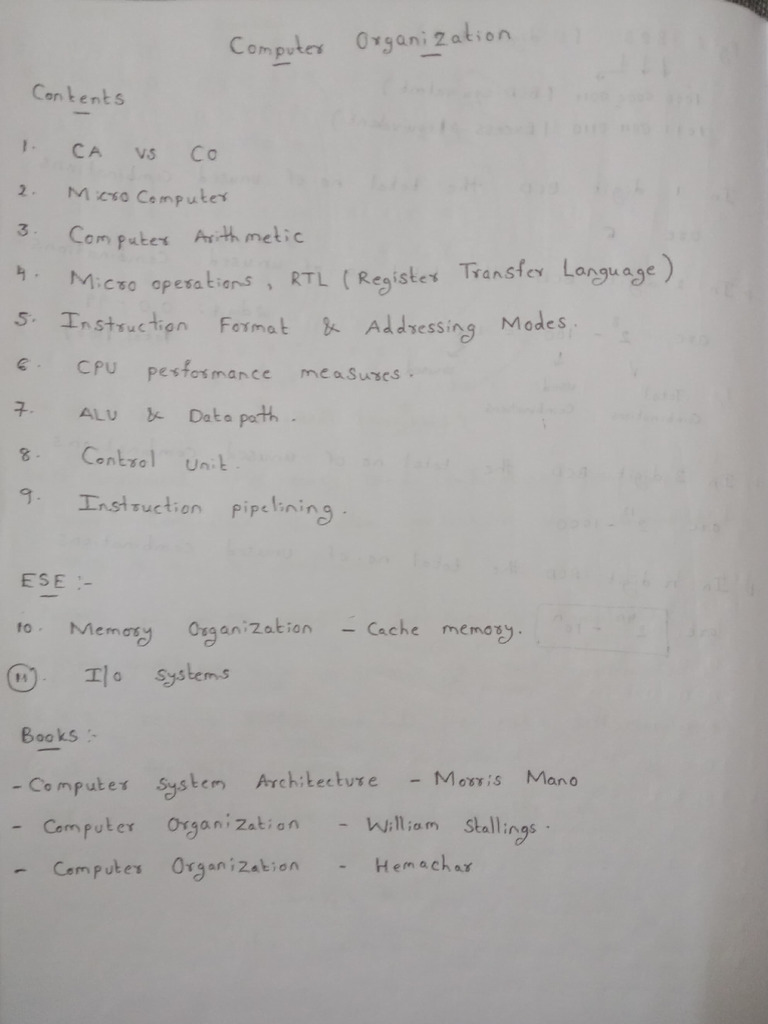 Computer Organization
Contents
1. CA vs CO
2. Micro Computer
3. Computer Arithmetic
4. Micro operations, RTL (Register Transfer Language)
5. Instruction Format & Addressing Modes.
6. CPU performance measures.
7. ALU & Data path.
8. Control Unit.
9. Instruction pipelining.
ESE :-
10. Memory Organization - Cache memory.
11. I/o systems
Books :-
- Computer System Architecture - Morris Mano
- Computer Organization - William Stallings.
- Computer Organization - Hemachar